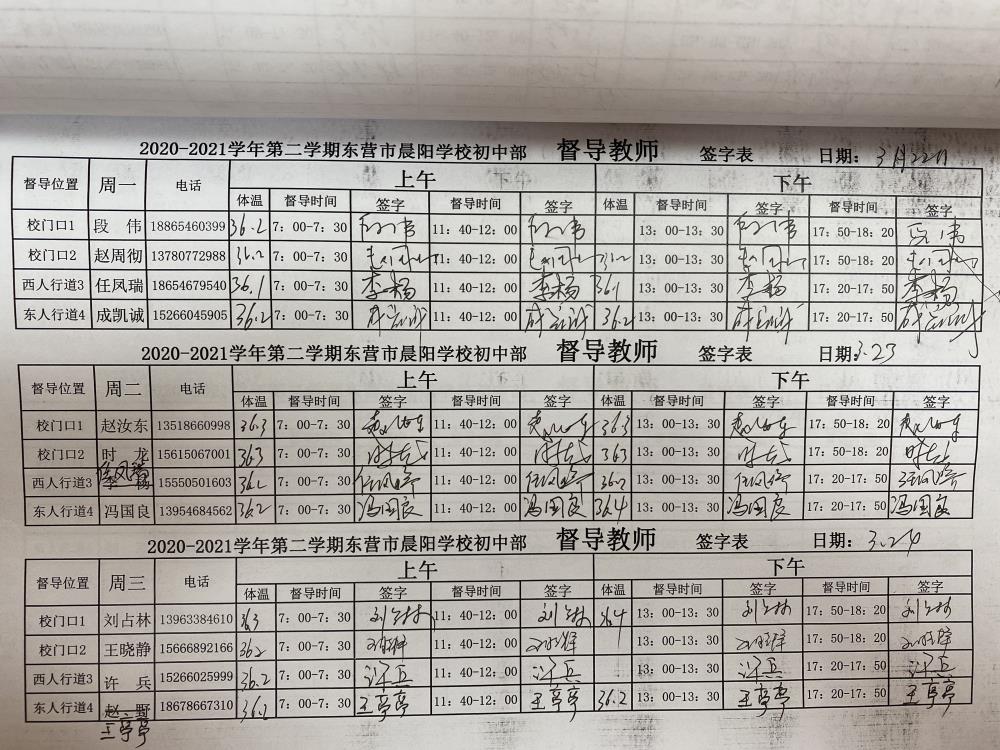 2020-2021学年第二学期东营市晨阳学校初中部 督导教师 签字表 日期: 3月22日
督导位置 周一 电话 上午 下午
体温 督导时间 签字 督导时间 签字 体温 督导时间 签字 督导时间 签字
校门口1 段 伟 18865460399 36.2 7: 00-7: 30 段伟 11: 40-12: 00 段伟 13: 00-13: 30 段伟 17: 50-18: 20 段伟
校门口2 赵周彻 13780772988 36.2 7: 00-7: 30 11: 40-12: 00 13: 00-13: 30 17: 50-18: 20
西人行道3 任凤瑞 18654679540 36.1 7: 00-7: 30 李杨 11: 40-12: 00 李杨 36.1 13: 00-13: 30 李杨 17: 20-17: 50 李杨
东人行道4 成凯诚 15266045905 36.2 7: 00-7: 30 11: 40-12: 00 36.2 13: 00-13: 30 17: 20-17: 50
2020-2021学年第二学期东营市晨阳学校初中部 督导教师 签字表 日期: 3.23
督导位置 周二 电话 上午 下午
体温 督导时间 签字 督导时间 签字 体温 督导时间 签字 督导时间 签字
校门口1 赵汝东 13518660998 36.3 7: 00-7: 30 赵汝东 11: 40-12: 00 赵汝东 36.3 13: 00-13: 30 赵汝东 17: 50-18: 20 赵汝东
校门口2 时 龙 15615067001 363 7: 00-7: 30 时龙 11: 40-12: 00 时龙 363 13: 00-13: 30 时龙 17: 50-18: 20 时龙
任凤瑞
西人行道3 李 杨 15550501603 7: 00-7: 30 任凤瑞 11: 40-12: 00 任凤瑞 13: 00-13: 30 任凤瑞 17: 20-17: 50 任凤瑞
东人行道4 冯国良 13954684562 36.2 7: 00-7: 30 冯国良 11: 40-12: 00 冯国良 36.4 13: 00-13: 30 冯国良 17: 20-17: 50 冯国良
2020-2021学年第二学期东营市晨阳学校初中部 督导教师 签字表 日期: 3.24
督导位置 周三 电话 上午 下午
体温 督导时间 签字 督导时间 签字 体温 督导时间 签字 督导时间 签字
校门口1 刘占林 13963384610 363 7: 00-7: 30 刘占林 11: 40-12: 00 刘占林 36.4 13: 00-13: 30 刘占林 17: 50-18: 20 刘占林
校门口2 王晓静 15666892166 362 7: 00-7: 30 11: 40-12: 00 13: 00-13: 30 17: 50-18: 20
西人行道3 许 兵 15266025999 36.2 7: 00-7: 30 许兵 11: 40-12: 00 许兵 13: 00-13: 30 许兵 17: 20-17: 50 许兵
东人行道4 赵 野 18678667310 7: 00-7: 30 王亭亭 11: 40-12: 00 王亭亭 36.2 13: 00-13: 30 王亭亭 17: 20-17: 50 王亭亭
王亭亭